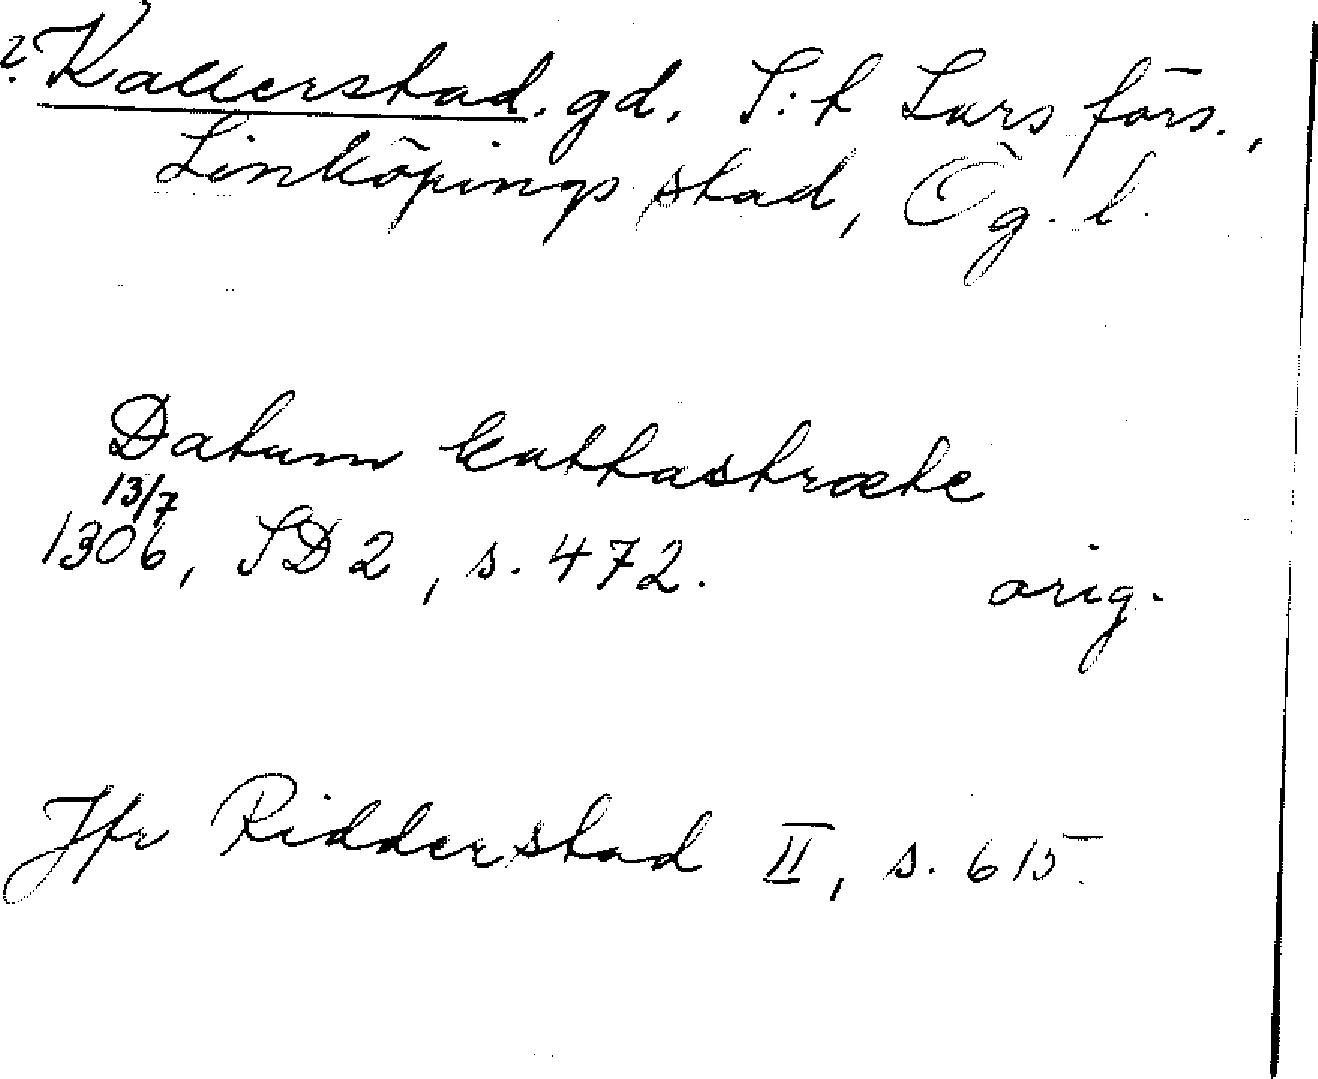 ? Kallerstad. gd. S:t Lars förs.,
Linköpings stad, Ög. l.
Datum kattastræte
13/7
1306, SD 2, s. 472. orig.
Jfr Ridderstad II, s. 615.